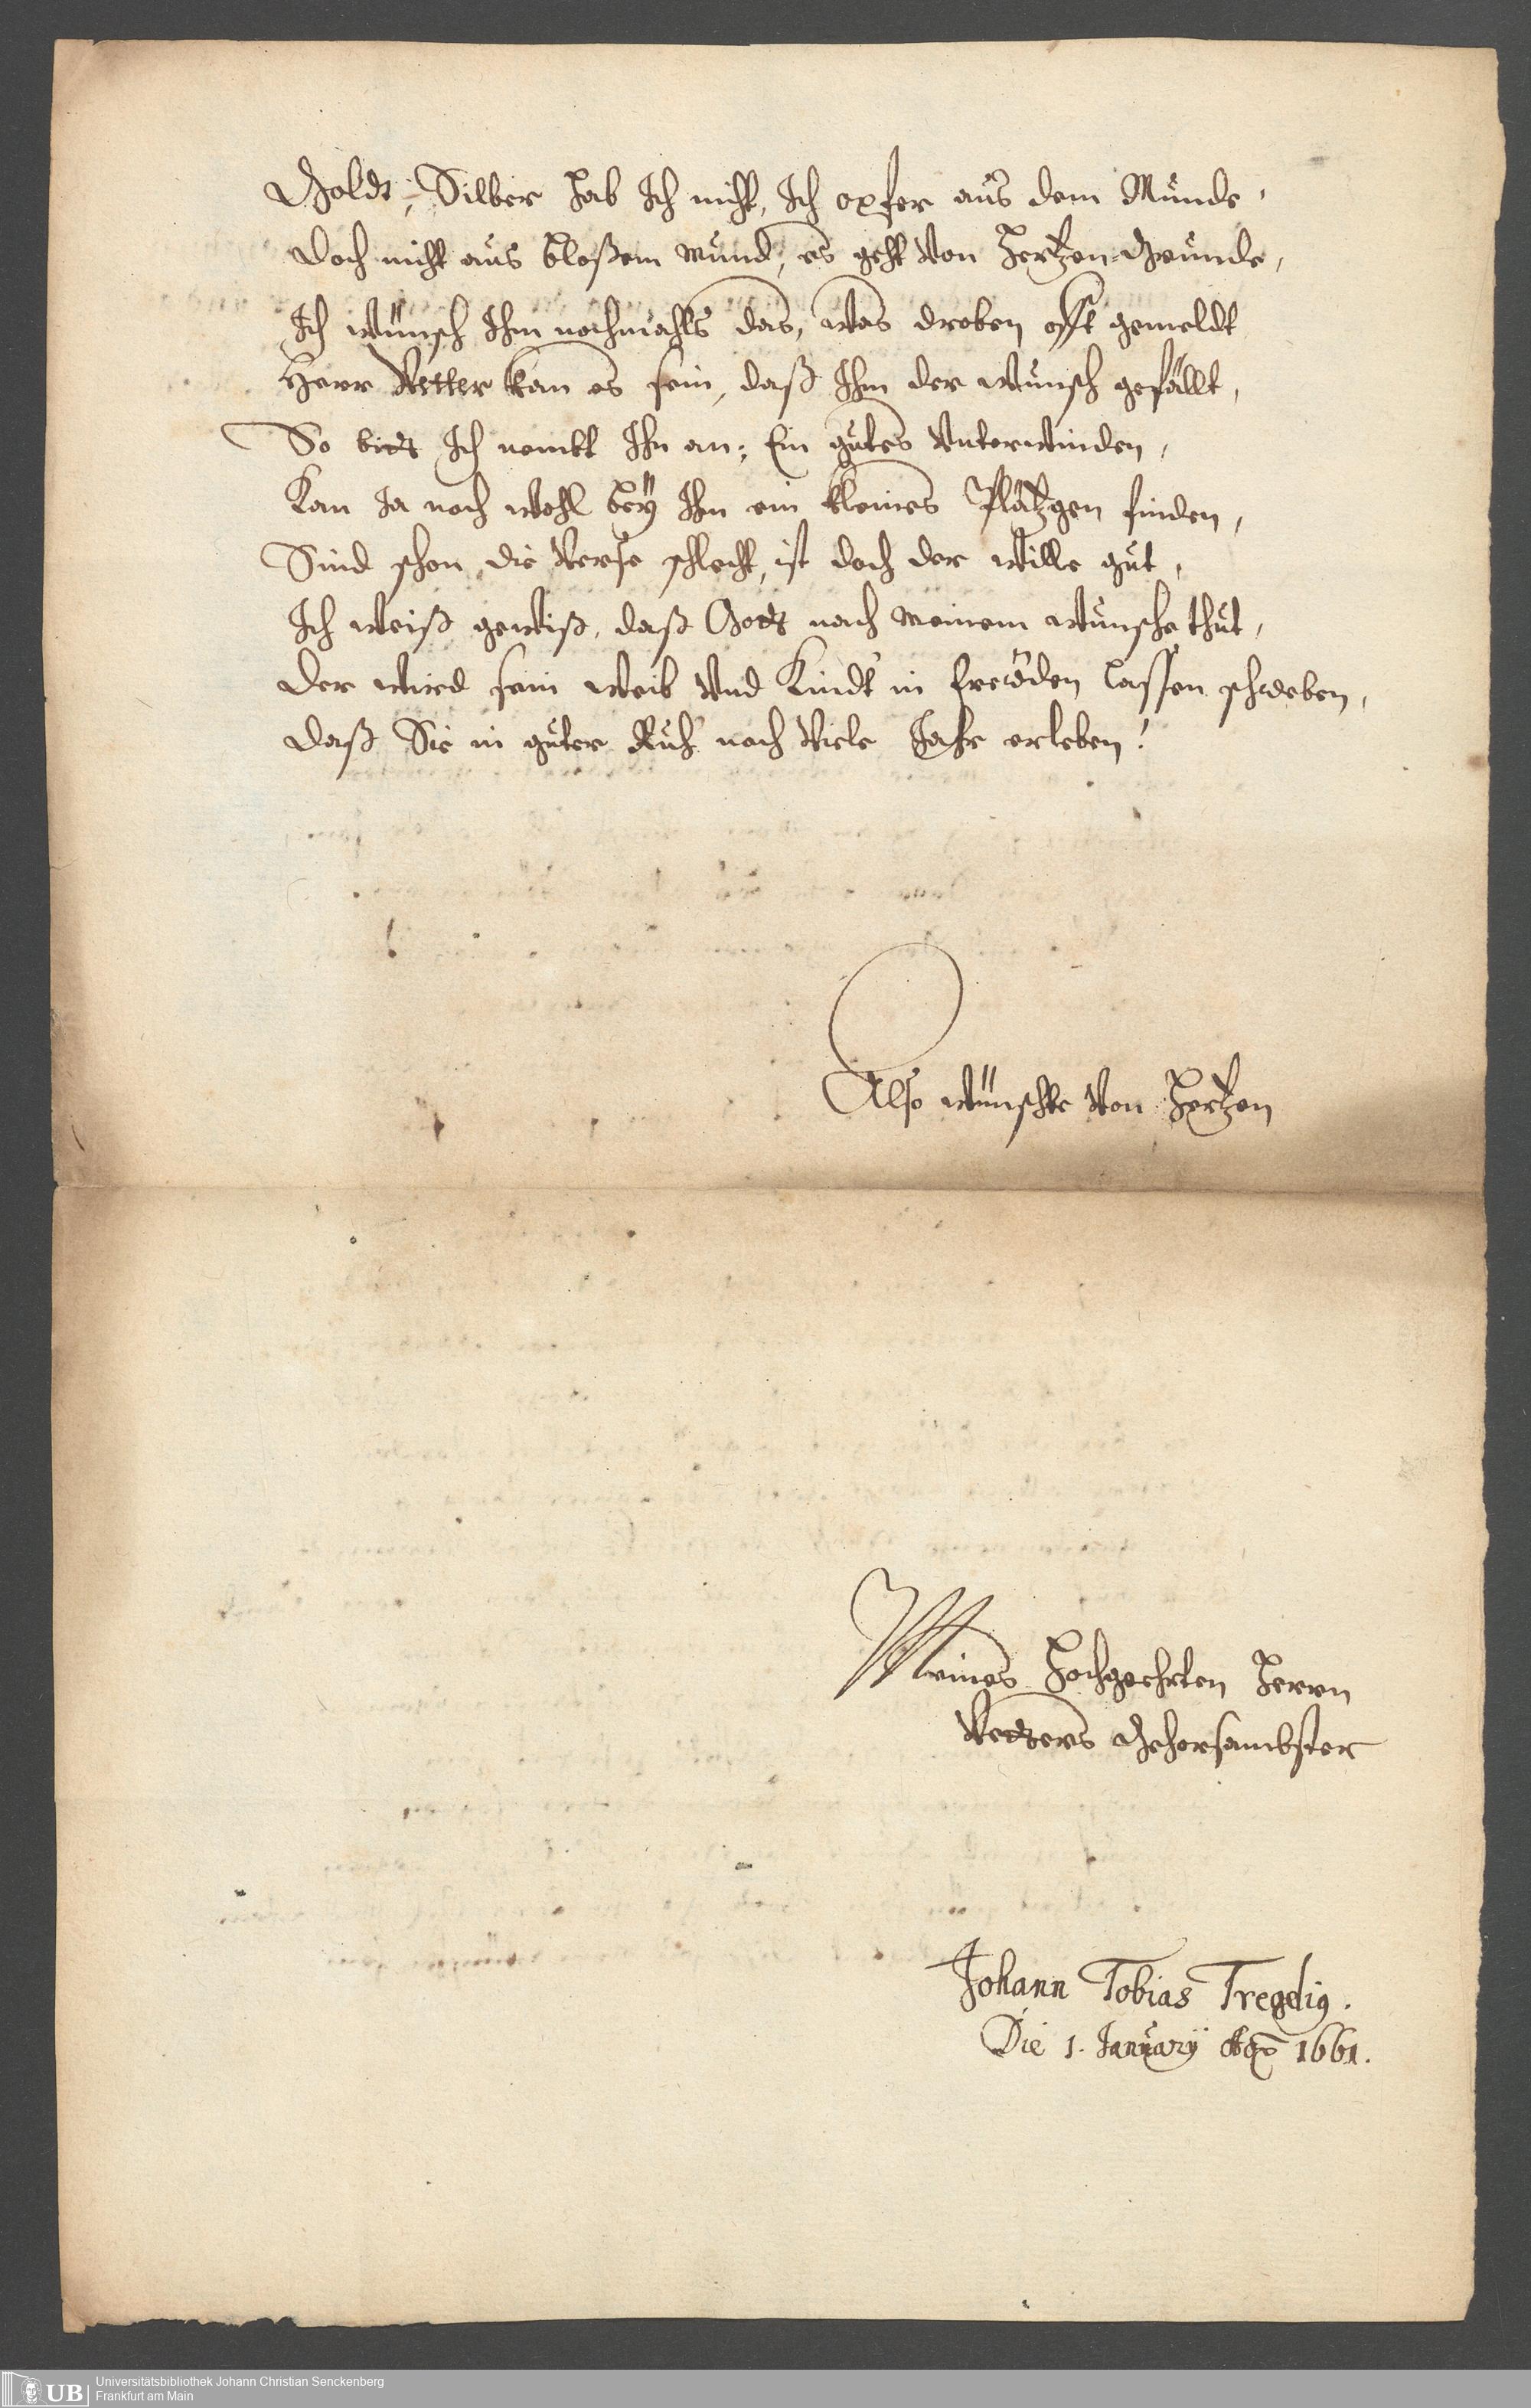 Goldt, Silber hab Ich nicht, Ich opfer aus dem Munde,
Doch nicht aus bloßem mund, es geht Von Hertzen-Grunde,
Ich wünsch Ihm nochmahls das, was droben offt gemeldt
Herr Vetter kan es sein, daß Ihm der wunsch gefällt,
So bitt Ich nembt Ihn an; Ein gutes Unterwinden,
Kan Ja noch wohl beÿ Ihn ein kleines Plätzgen finden,
Sind schon die Verse schlecht, ist doch der wille gut,
Ich weiß gewiß, daß Gott nach meinem wunsche thut,
Der wird sein weib Vnd Kindt in frewden lassen schweben,
Daß Sie in guter Ruh noch Viele Jahr erleben!
Also wünschte Von Hertzen
Meines Hochgeehrten Herrn
Vetters Gehorsambster
Johann Tobias
Die 1. Januarÿ 1661.
Universitätsbibliothek Johann Christian Senckenberg
UB Frankfurt am Main